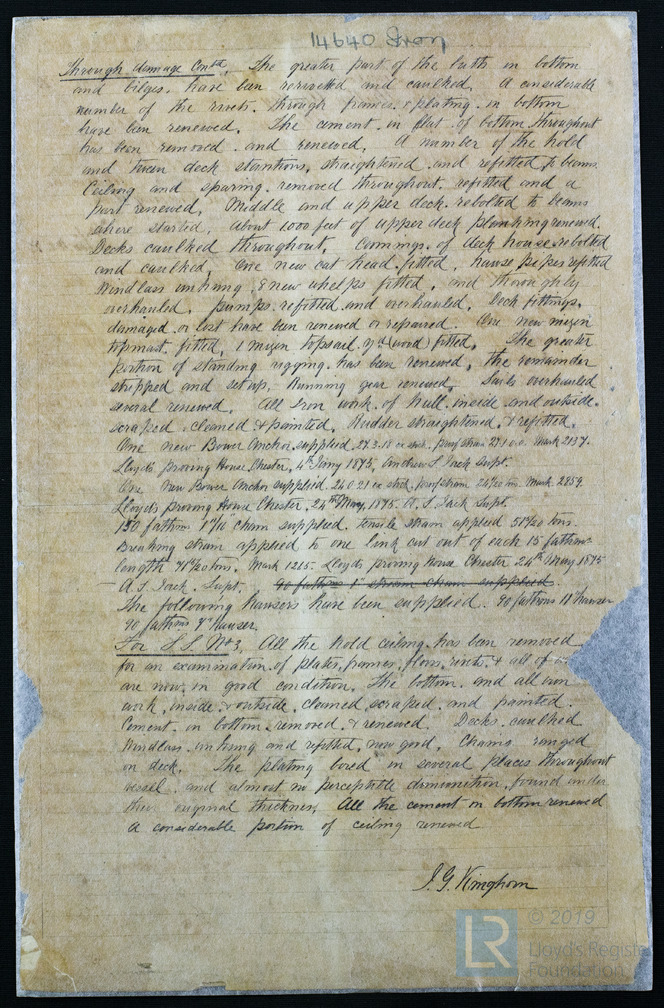 14640 Iron
Through damage Contd. The greater part of the butts in bottom
and bilges, have been rerivetted and caulked. A considerable
number of the rivets through frames & plating in bottom
have been renewed. The cement in flat of bottom throughout
has been removed and renewed. A number of the hold
and tween deck stantions, straightened and refitted to beams
Ceiling and sparing removed throughout refitted and a
part renewed. Middle and upper deck rebolted to beams
where started. About 1000 feet of upper deck planking renewed.
Decks caulked throughout. Comings of deck house rebolted
and caulked. One new cat head fitted, hause pipes refitted
Windlass unhung. 8 new whelps fitted, and thoroughly
overhauled. pumps refitted and overhauled. Deck fittings,
damaged or lost have been renewed or repaired. One new mizen
topmast fitted, 1 mizen topsail yd (wood) fitted. The greater
portion of standing rigging has been renewed, the remainder
stripped and set up, Running gear renewed, Sails overhauled
several renewed. All Iron work of hull inside and outside
scraped, cleaned & painted. Rudder straightened & refitted.
One new Bower Anchor supplied 27.3.18 ex stock, proof strain Mark 2137.
Lloyds proving House Chester, 4th Jany 1875, Andrew S. Jack Supt.
One New Bower Anchor supplied. 24.0.21 ex stock, proof strain Mark. 2859.
Lloyds proving House Chester, 24th May, 1875. A. S. Jack Supt.
150 fathm 1 9/10 chain supplied. tensile strain applied tons.
Breaking strain applied to one link cut out of each 15 fathom
length tons. Mark 1215. Lloyds proving House Chester 24th May 1875
A. S. Jack. Supt. 90 fathms 1" stream chain supplied.
The following hausers have been supplied. 90 fathoms 11" hauser
90 fathms hauser.
For S.S. No 3. All the hold ceiling has been removed
for an examination of plates, frames, floors, rivets, & all of
are now in good condition. The bottom and all iron
work, inside & outside, cleaned, scraped and painted.
Cement in bottom removed & renewed. Decks caulked
Windlass unhung and refitted, now good. Chains ranged
on deck. The plating bored in several places throughout
vessel and almost no perceptible diminution, found under
their original thickness. All the cement in bottom renewed
A considerable portion of ceiling renewed
J. G. Kinghorn
LR
© 2019
Lloyd's Register
Foundation